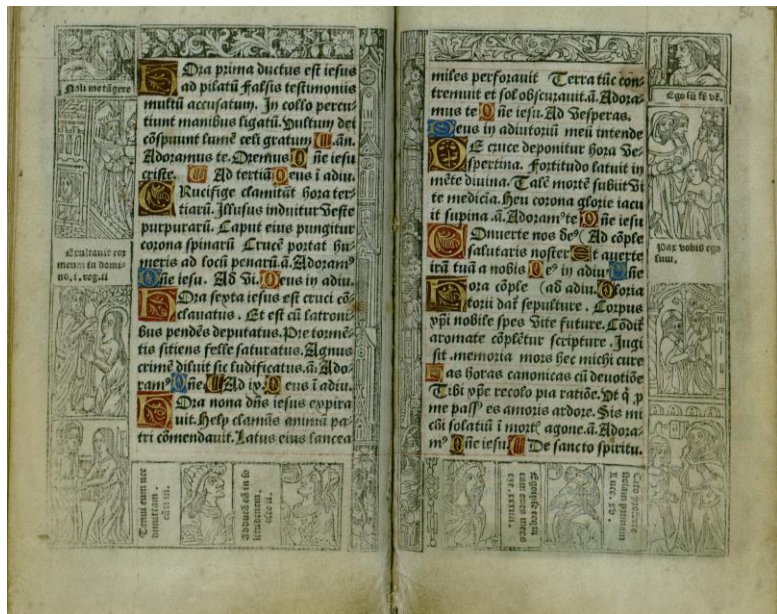 Noli me tāgere
Exultauit cor
meum in domi-
no. i. reg. ii
Ora prima ductus est iesus
ad pilatū falsis testimoniis
multū accusatum. In collo percu-
tiunt manibus ligatū. Vultum dei
cōspuunt lumē celi gratum .ān.
Adoramus te. Oremus Dñe iesu
criste. Ad tertiā Deus ī adiu.
CRucifige clamitāt hora ter-
tiarū. Illusus induitur veste
purpurarū. Caput eius pungitur
corona spinarū Crucē portat hu-
meris ad locū penarū.ā. Adoramꝰ
Dñe iesu. Ad vi. Deus in adiu.
HOra sexta iesus est cruci cō-
clauatus. Et est cū latroni-
bus pendēs deputatus. Pre tormē-
tis sitiens felle saturatus. Agnus
crimē diluit sic ludificatus.ā. Ado-
ramꝰ Dñe. Ad ix. Deus ī adiu.
HOra nona dñs iesus expira-
uit. Hely clamās animā pa-
tri cōmendauit. Latus eius lancea
Tenui eum nec
dimittam.
cāti. iii.
miles perforauit Terra tūc con-
tremuit et sol obscurauit.ā. Adora-
mus te Dñe iesu. Ad vesperas.
Deus in adiutoriū meū intende
DE cruce deponitur hora ve-
spertina. Fortitudo latuit in
mēte diuina. Talē mortē subiit vi-
te medicia. Heu corona glorie iacu
it supina .ā. Adoramꝰ te Dñe iesu
COnuerte nos deꝰ (Ad cōple
salutaris noster Et auerte
irā tuā a nobis Deꝰ in adiu. Dñe
Hora cōple (ad adiu. Gloria
torii daṫ sepulture. Corpus
xp̄i nobile spes vite future. Cōdiṫ
aromate cōplētur scripture. Jugi
sit .memoria mors hec michi cure
Has horas canonicas cū deuotiōe
Tibi xp̄e recolo pia ratiōe. Vt q̄ p̱
me passꝰ es amoris ardore. Sis mi
chi solatiū ī mortꝭ agone.ā. Adora-
mꝰ Dñe iesu. De sancto spiritu.
Ego sū
Pax vobis ego
sum.